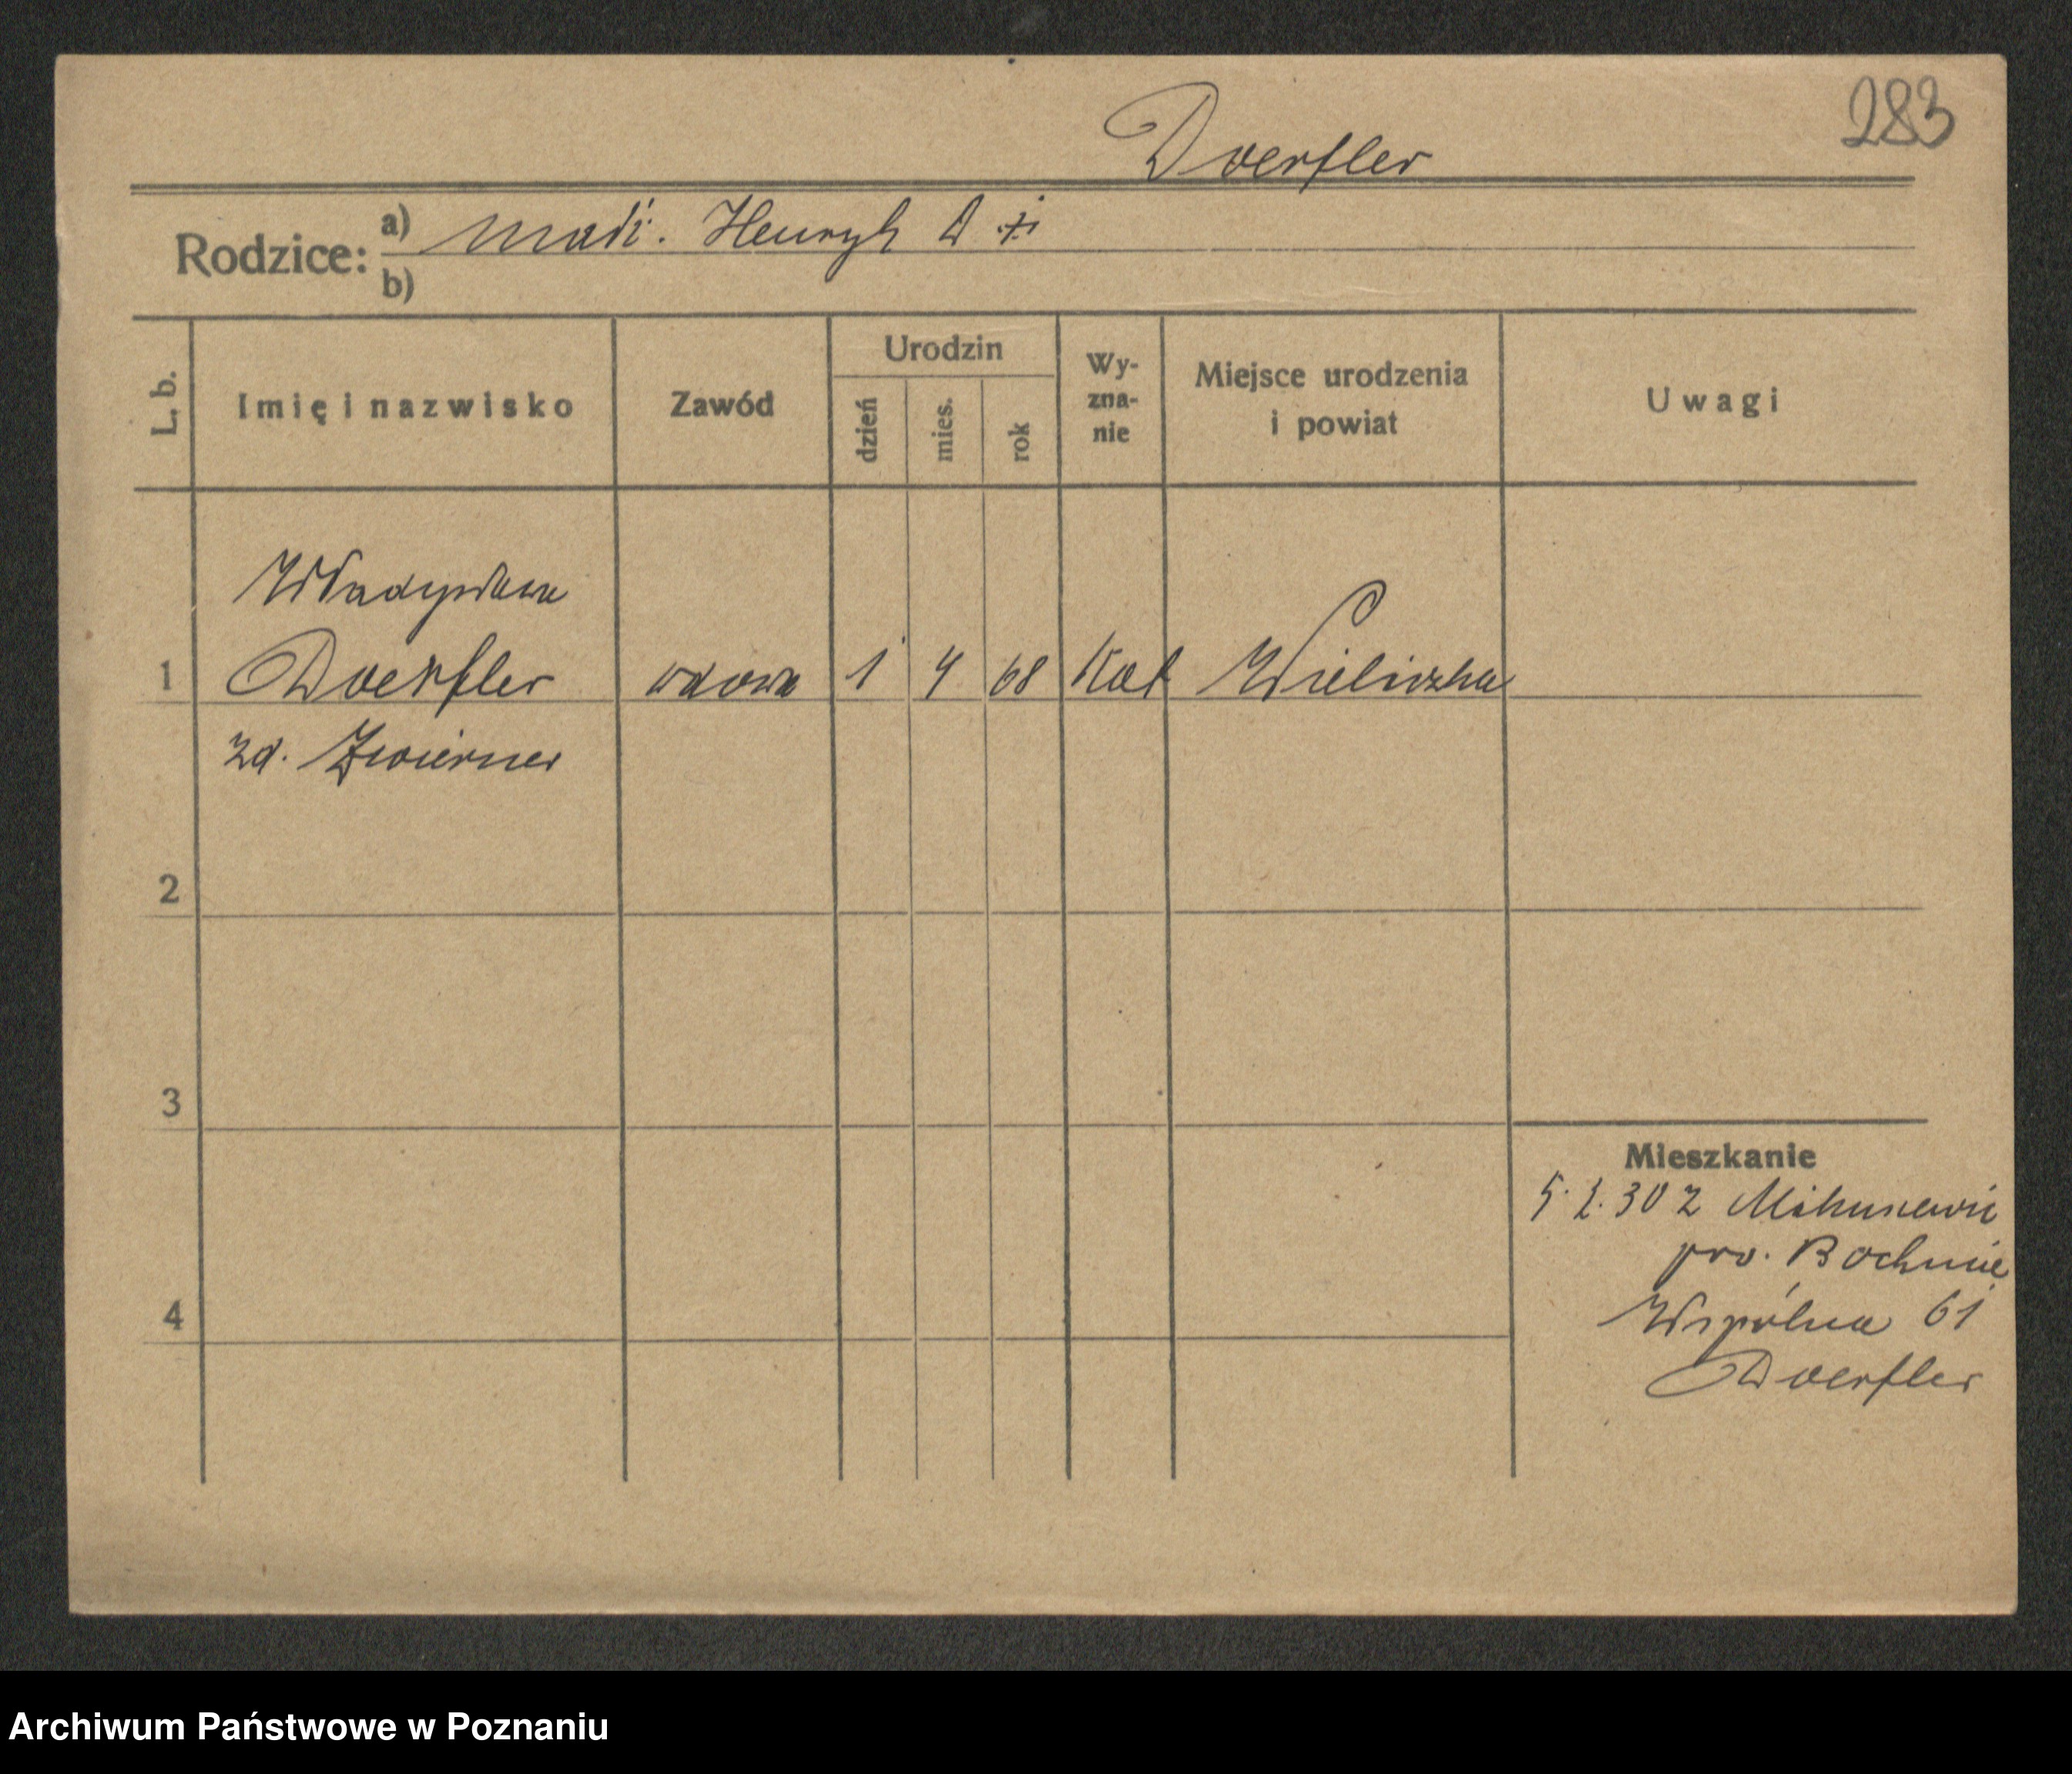 283
Doerfler
Rodzice: a) mąż. Henryk D ⚔
b)
L. b.
Imię i nazwisko
Zawód
Urodzin
dzień
mies.
rok
Wy-
zna-
nie
Miejsce urodzenia
i powiat
Uwagi
Władysława
1 Doerfler wdowa 1 4 68 Kat Wieliczka
zd.
2
3
Mieszkanie
5. 2. 30 z
pow. Bochnia
4
Wspólna 61
Doerfler
Archiwum Państwowe w Poznaniu